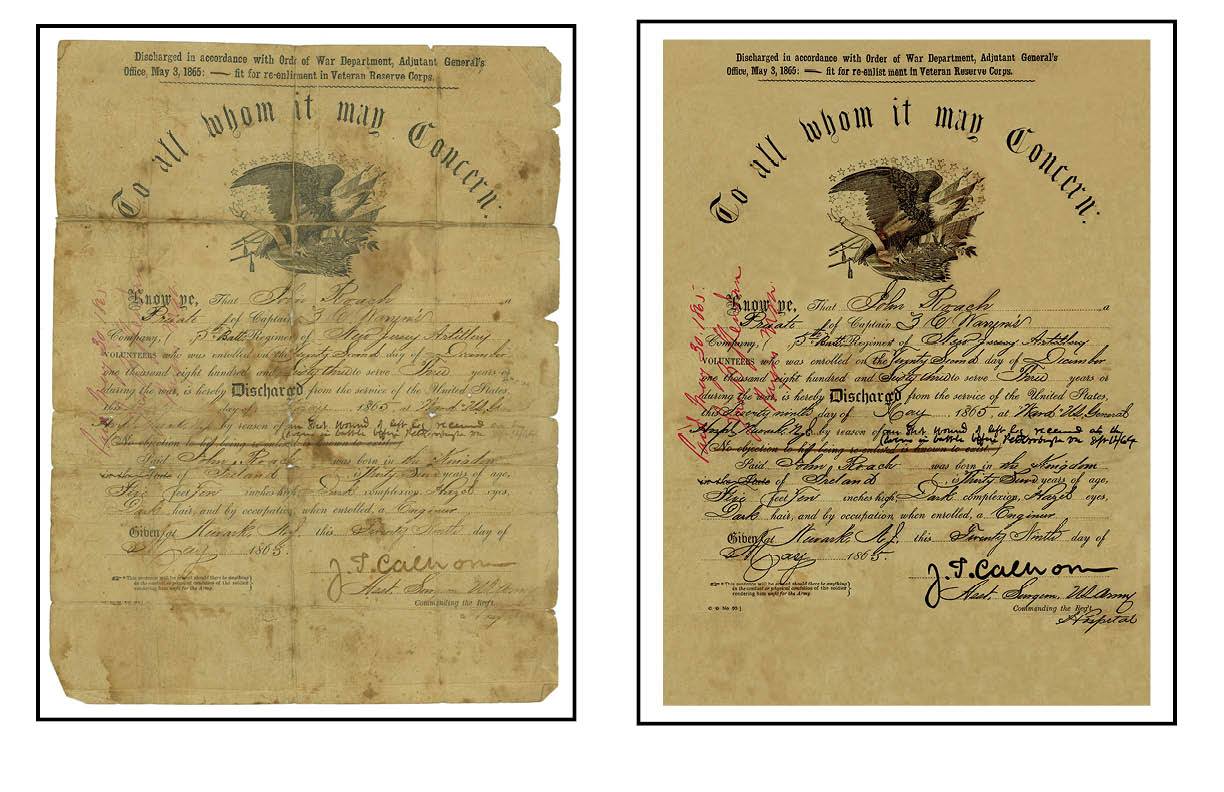 Discharged in accordance with Orde of War Department, Adjutant General's
Office, May 3, 1865: — fit for re-enlistment in Veteran Reserve Corps.
To all whom it may Concern:
Know ye, That John Roach a
Private of Captain 3 C Warren's
Company, 5th Batt Regiment of New Jersey Artillery
VOLUNTEERS who was enrolled on the Twenty Second day of December
one thousand eight hundred and Sixty three to serve Three years or
during the war, is hereby Discharged from the service of the United States,
this day of May 1865, at Ward U.S. Gen
by reason of
No objection to his being re-enlisted is known to exist
Said John Roach was born in the Kingdom
in the State of Ireland, Thirty years of age,
Five feet Ten inches high, Dark complexion, Hazel eyes,
Dark hair, and by occupation, when enrolled, a Engineer
Given at Newark N.J. this Twenty Ninth day of
May 1865.
J. T. Calhoun
Asst. Surgeon U.S. Army
Commanding the Reg't
* This sentence will be erased should there be anything
in the conduct or physical condition of the soldier
rendering him unfit for the Army.
Discharged in accordance with Order of War Department, Adjutant General's
Office, May 3, 1865: — fit for re-enlist ment in Veteran Reserve Corps.
To all whom it may Concern:
Know ye, That John Roach a
Private of Captain 3 C Warren's
Company, 5th Batt Regiment of New Jersey Artillery
VOLUNTEERS who was enrolled on the Twenty Second day of December
one thousand eight hundred and Sixty three to serve Three years or
during the war, is hereby Discharged from the service of the United States,
this Twenty ninth day of May 1865, at Ward U.S. General
Hospl Newark N.J. by reason of Gun Shot Wound of left leg received at the
before Petersburgh Va
No objection to his being re-enlisted is known to exist
Said John Roach was born in the Kingdom
in the State of Ireland, Thirty years of age,
Five feet Ten inches high, Dark complexion, Hazel eyes,
Dark hair, and by occupation, when enrolled, a Engineer
Given at Newark N.J. this Twenty Ninth day of
May 1865.
J. T. Calhoun
Asst. Surgeon, U.S. Army
Commanding the Reg't
Hospital
* This sentence will be erased should there be anything
in the conduct or physical condition of the soldier
rendering him unfit for the Army.
Paid May 30, 1865.